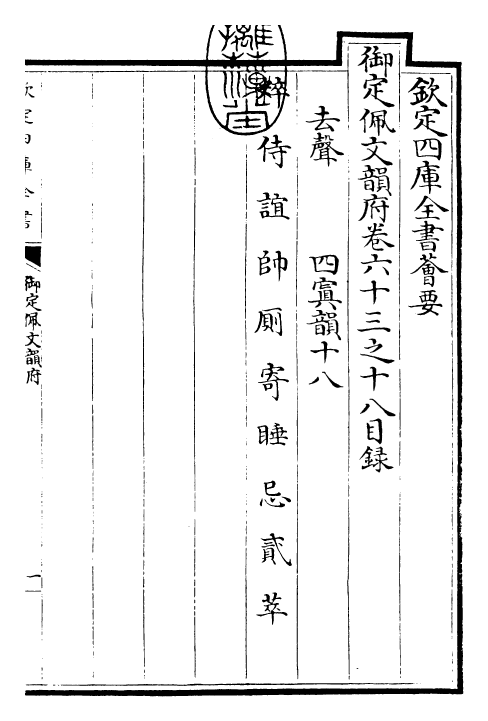 欽定四庫全書薈要
御定佩文韻府卷六十三之十八目録
去聲　四寘韻十八
粹侍誼帥厠寄睡忌貳萃
欽定四庫全書
御定佩文韻府
一